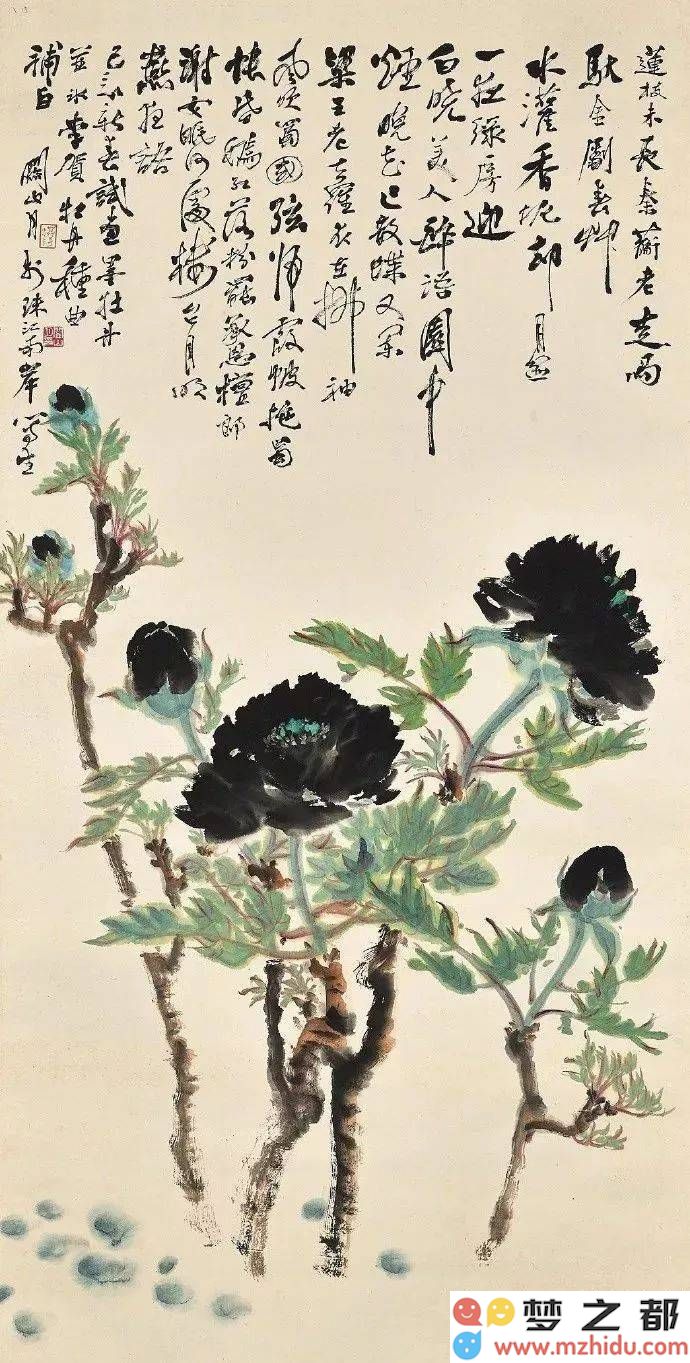 蓮枝未長秦蘅老走馬
馱金劚春艸
水灌香泥却月盤
一夜綠房迎
白曉美人醉語園中
煙晚花已散蝶又闌
梁王老去羅衣在拂袖
風吹蜀國弦歸霞帔拖蜀
帳昏嫣紅落粉罷承恩檀郎
謝女眠何處樓台月明
燕夜語
新春試畫墨牡丹
並錄李賀牡丹種曲
補白
關山月於珠江南岸寫生
梦之都
www.mzhidu.com